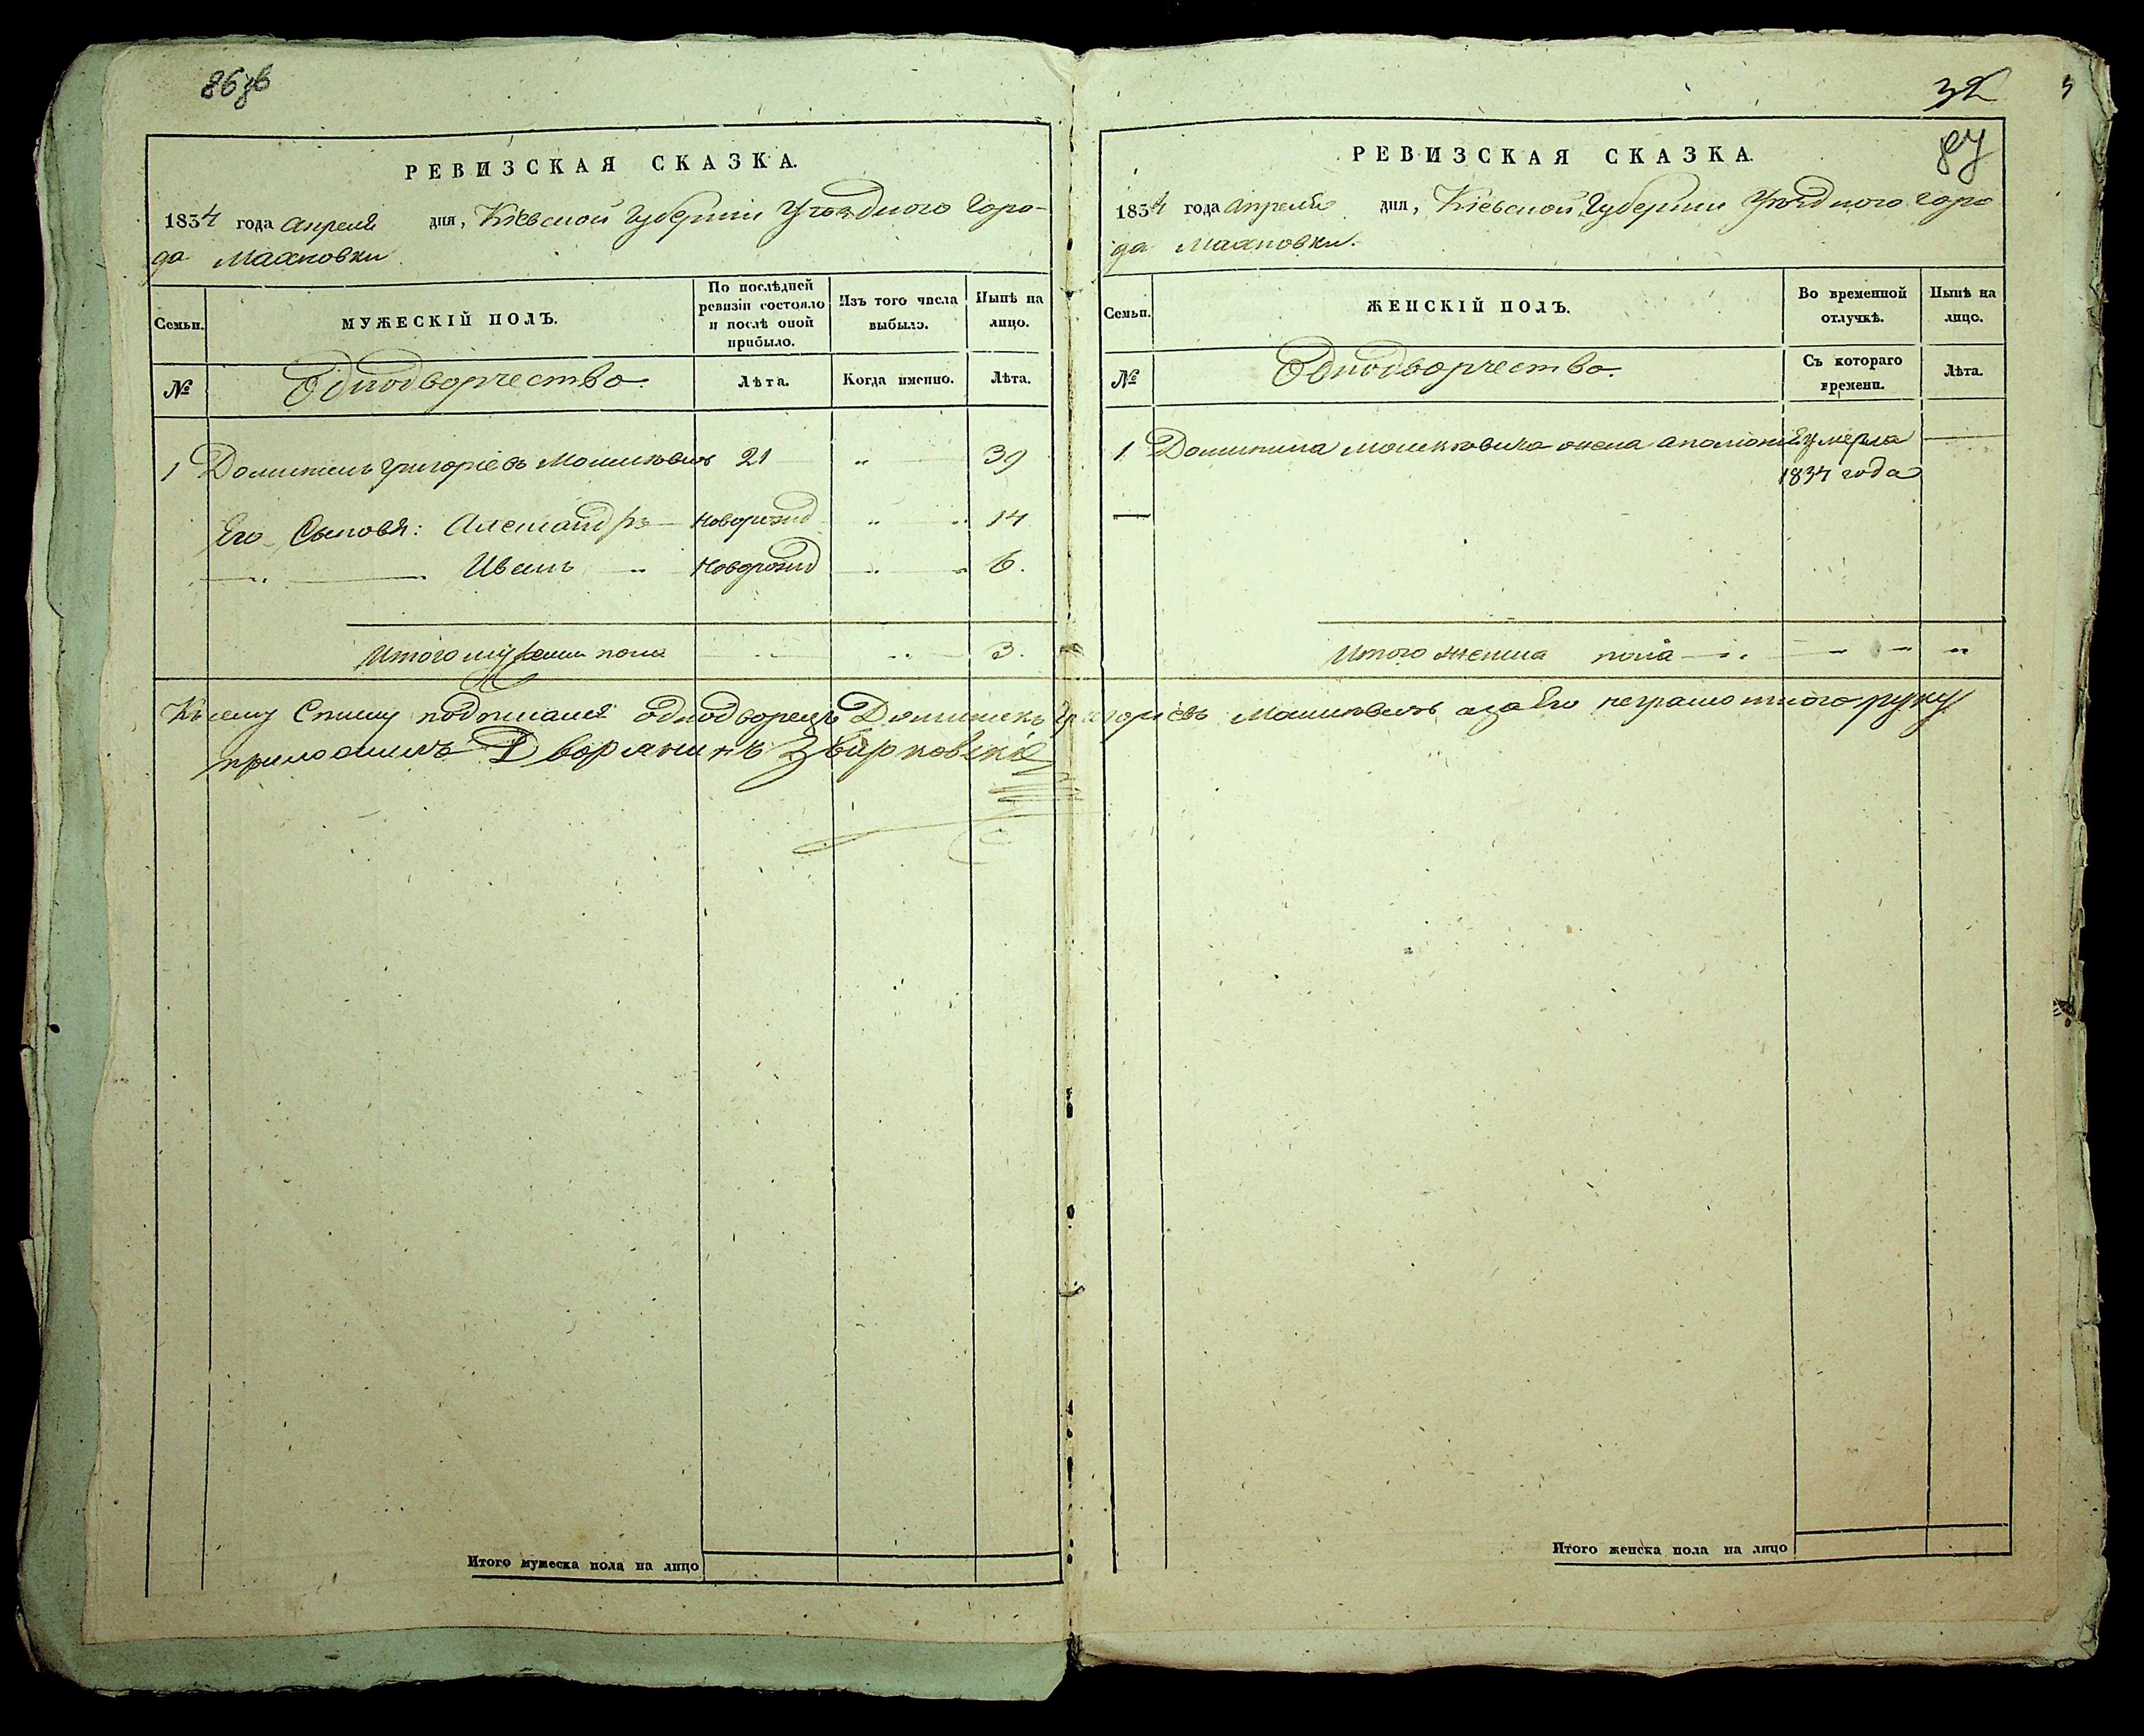 86 зв
РЕВИЗСКАЯ СКАЗКА.
1834 года апреля дня, Кіевской Губерніи Уѣзднаго Горо-
да Махновки.
Семьи.
МУЖЕСКІЙ ПОЛЪ.
По послѣдней ревизіи состояло и послѣ оной прибыло.
Изъ того числа выбыло.
Нынѣ на лицо.
№
Однодворчество.
Лѣта.
Когда именно.
Лѣта.
1 Доминикъ Григоріевъ 21 „ 39
Его Сыновья: Александръ новорожд „ „ 14
„ Иванъ „ новорожд „ „ 6.
Итого мужеска пола „ „ 3.
32
87
РЕВИЗСКАЯ СКАЗКА.
1834 года апреля дня, Кіевской Губерніи Уѣзднаго горо
да Махновки.
Семьи.
ЖЕНСКІЙ ПОЛЪ.
Во временной отлучкѣ.
Нынѣ на лицо.
№
Однодворчество.
Съ котораго времени.
Лѣта.
1 Доминика жена умерла
1834 года
Итого женска пола
К сему подписался однодворецъ Доминикъ Григоріевъ а за Его неграмотнаго руку
приложилъ Дворянинъ
Итого мужеска пола на лицо
Итого женска пола на лицо